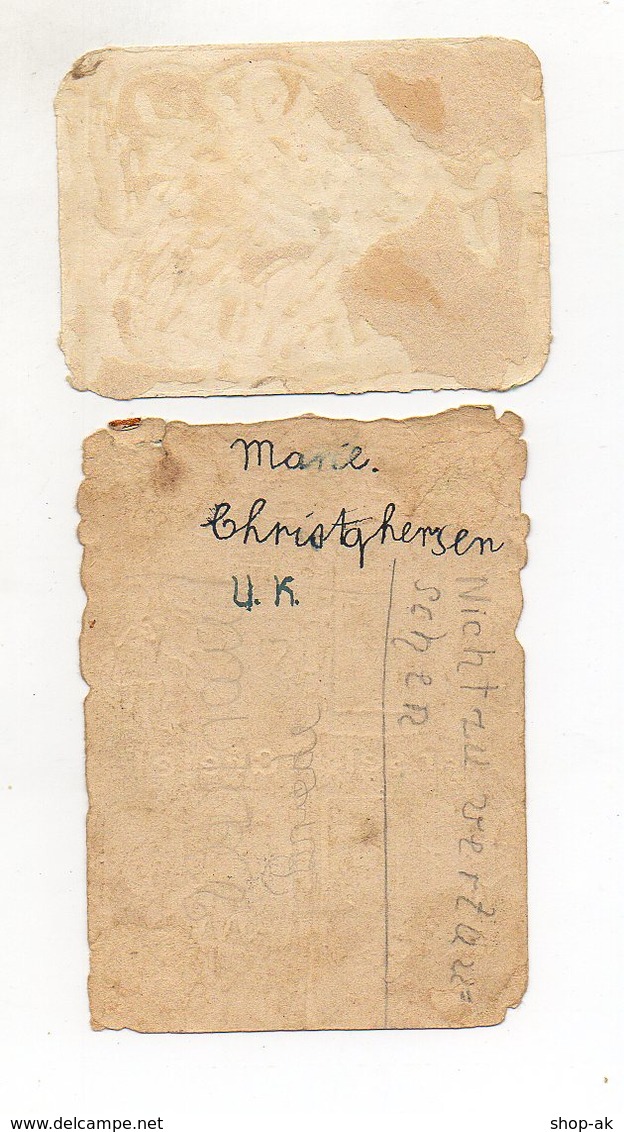 Marie.
Christghersen
U.K.
Nicht zu verzau=
schen
www.delcampe.net
shop-ak